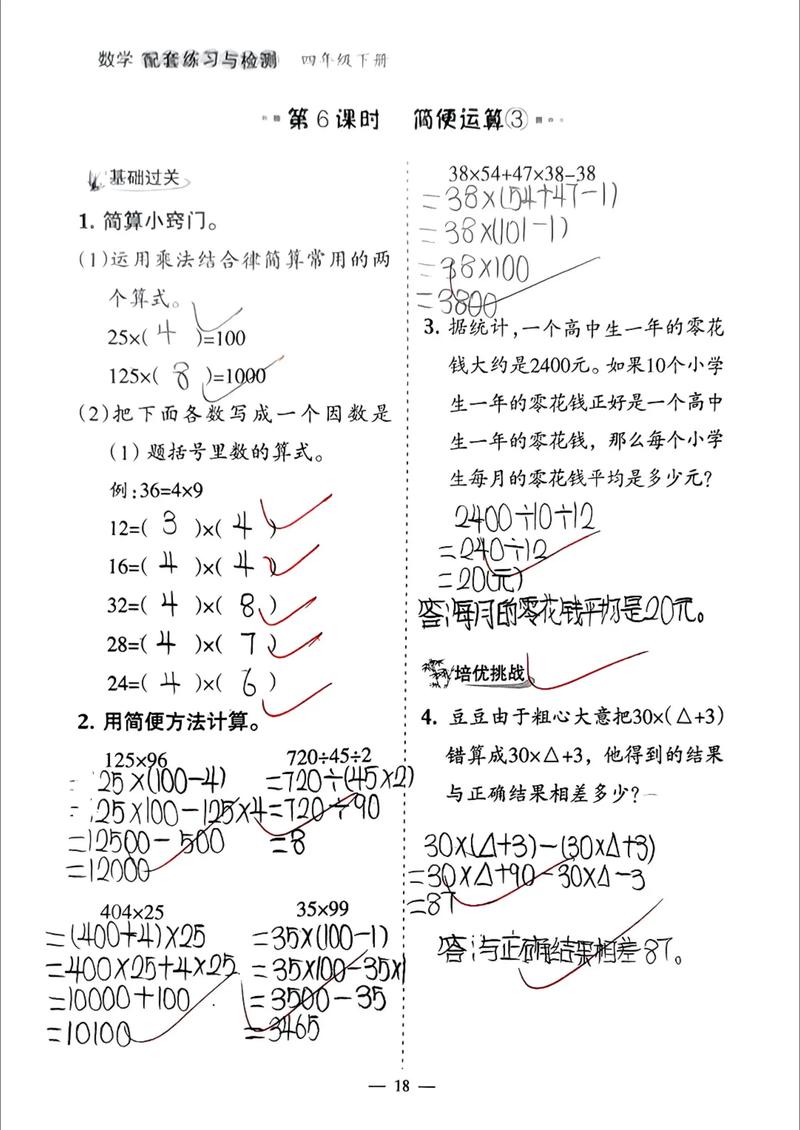 数学 配套练习与检测 四年级下册
第6课时 简便运算③
基础过关
1. 简算小窍门。
(1)运用乘法结合律简算常用的两
个算式。
25×( 4 )=100
125×( 8 )=1000
(2)把下面各数写成一个因数是
(1)题括号里数的算式。
例:36=4×9
12=( 3 )×( 4 )
16=( 4 )×( 4 )
32=( 4 )×( 8 )
28=( 4 )×( 7 )
24=( 4 )×( 6 )
2. 用简便方法计算。
125×96
=125×(100-4)
=125×100-125×4
=12500-500
=12000
720÷45÷2
=720÷(45×2)
=720÷90
=8
404×25
=(400+4)×25
=400×25+4×25
=10000+100
=10100
35×99
=35×(100-1)
=35×100-35×1
=3500-35
=3465
38×54+47×38-38
=38×(54+47-1)
=38×(101-1)
=38×100
=3800
3. 据统计,一个高中生一年的零花
钱大约是2400元。如果10个小学
生一年的零花钱正好是一个高中
生一年的零花钱，那么每个小学
生每月的零花钱平均是多少元?
2400÷10÷12
=240÷12
=20(元)
答:每月的零花钱平均是20元。
培优挑战
4. 豆豆由于粗心大意把30×(△+3)
错算成30×△+3，他得到的结果
与正确结果相差多少?
30×(△+3)-(30×△+3)
=30×△+90-30×△-3
=87
答:与正确结果相差87。
— 18 —